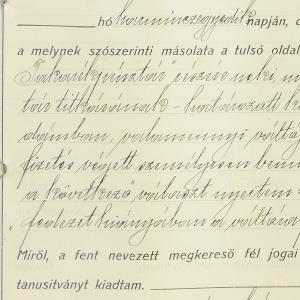 hó harminczegyedik napján, 
a melynek szószerinti másolata a tulsó oldal
Takarékpénztár részére neki
tár titkárának - határozott
dámban, valamennyi váltó
fizetés végett személyesen bem
a következő választ nyertem
„fedezet hiányában a váltóna
Miről, a fent nevezett megkereső fél jogai
tanusítványt kiadtam.